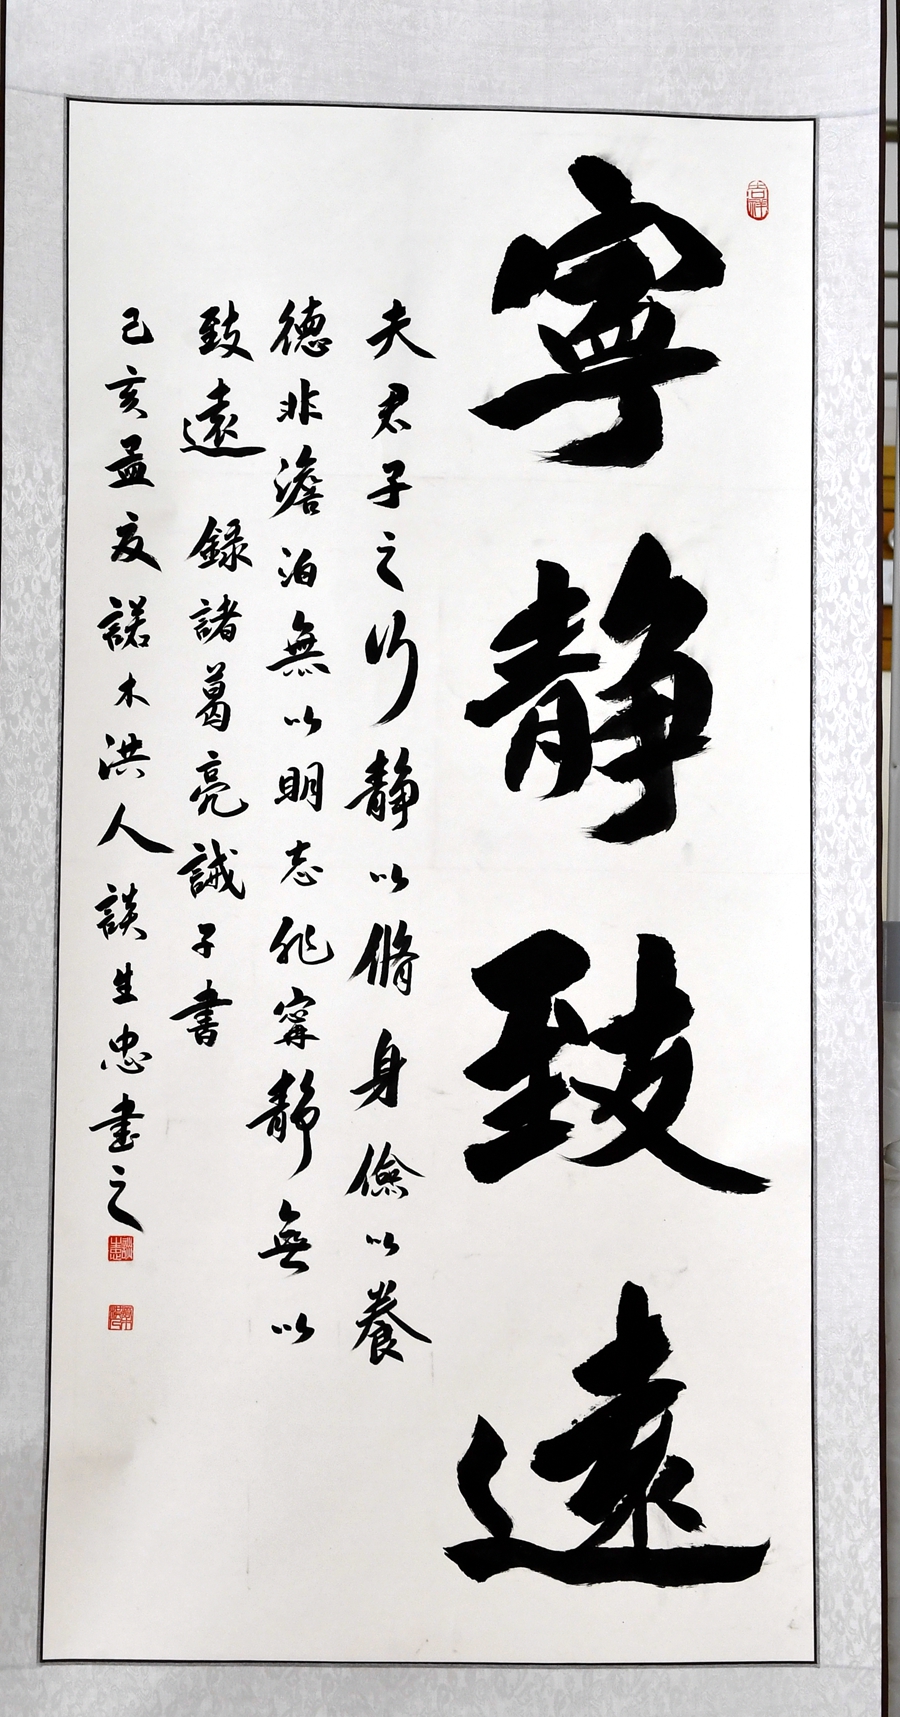 吉祥
寧静致遠
夫君子之行静以脩身儉以養
德非澹泊無以明志非寧静無以
致遠 錄諸葛亮誡子書
己亥孟夏諾木洪人談生忠書之